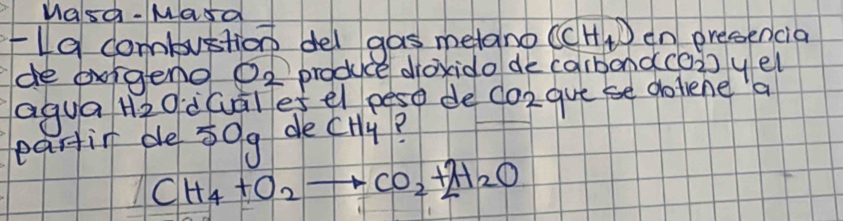 Masa - Masa
- La combustion del gas metano (CH4) en presencia
de oxigeno O2 produce dioxido de carbono (CO2) y el
agua H2O: ¿Cuál es el peso de CO2 que se obtiene a
partir de 50g de CH4?
CH4 + O2 → CO2 + 2H2O